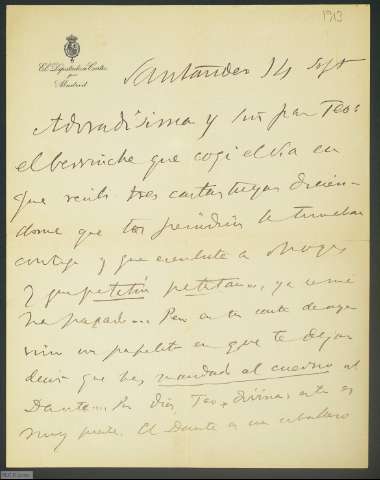 1913
El Diputado a Cortes
por
Madrid
Santander 14 Spt
Adoradísima y sin par Teo:
el berrinche que cogí el día en
que recibí tres cartas tuyas dicien-
dome que los
contigo y que
y que petitín petitano, ya se me
ha pasado... Pero en tu carta de ayer
viene un papelito en que te dejan
decir que has mandad al cuerno al
Dante... Por Dios, Teo divina, esto es
muy fuerte. El Dante es un caballero